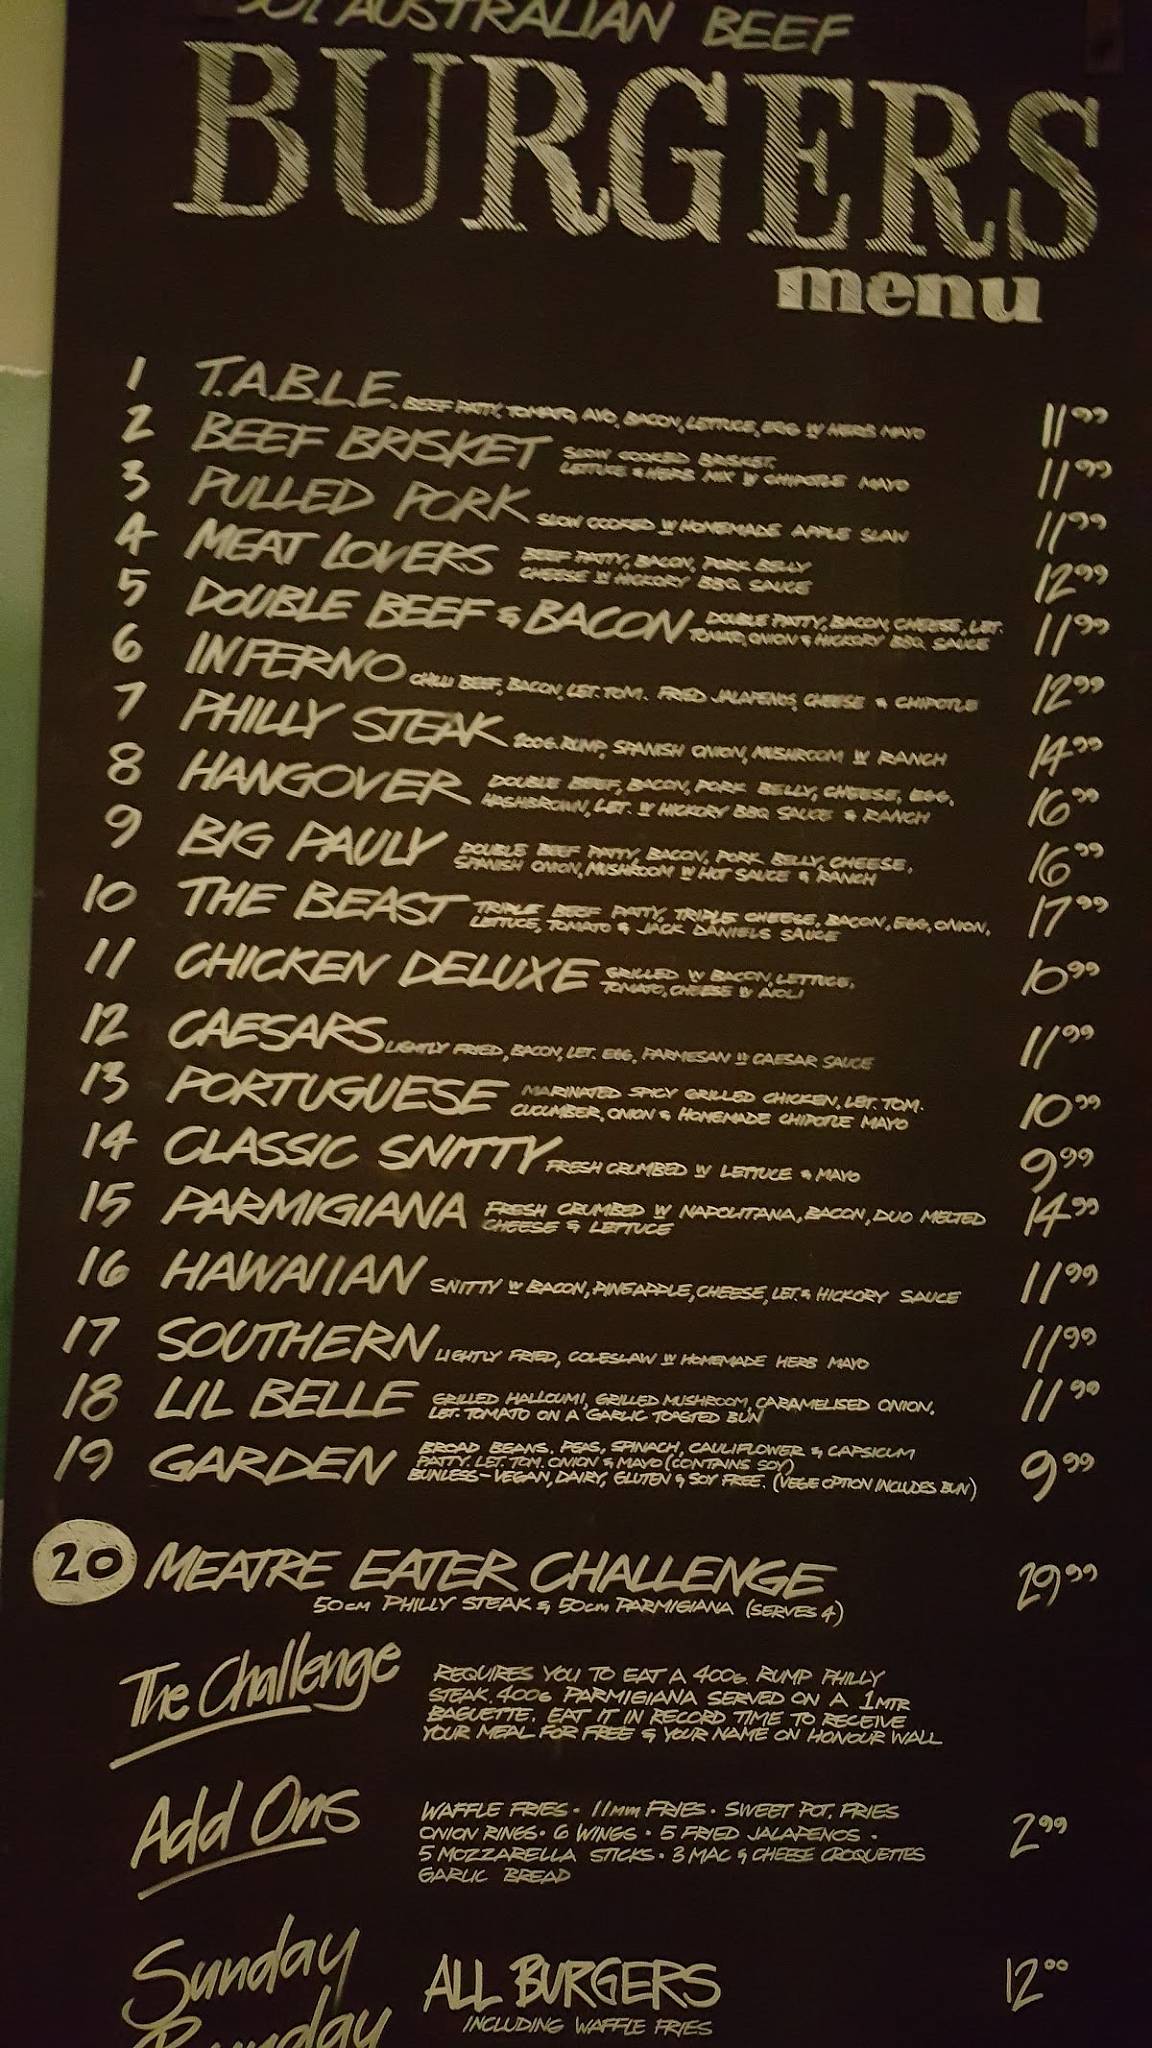 AUSTRALIAN BEEF
BURGERS
menu
1 T.A.B.L.E. BEEF PATTY, TOMATO, AVO, BACON, LETTUCE, EGG W HERB MAYO 11.99
2 BEEF BRISKET SLOW COOKED BRISKET. 11.99
LETTUCE & HERB MIX W CHIPOTLE MAYO
3 PULLED PORK SLOW COOKED W HOMEMADE APPLE SLAW 11.99
4 MEAT LOVERS BEEF PATTY, BACON, PORK BELLY 12.99
CHEESE W HICKORY BBQ SAUCE
5 DOUBLE BEEF & BACON DOUBLE PATTY, BACON, CHEESE, LET. 11.99
TOMATO, ONION & HICKORY BBQ SAUCE
6 INFERNO CHILLI BEEF, BACON, LET. TOM. FRIED JALAPENOS, CHEESE & CHIPOTLE 12.99
7 PHILLY STEAK 200G. RUMP, SPANISH ONION, MUSHROOM W RANCH 14.99
8 HANGOVER DOUBLE BEEF, BACON, PORK BELLY, CHEESE, EGG, 16.99
HASHBROWN, LET. W HICKORY BBQ SAUCE & RANCH
9 BIG PAULY DOUBLE BEEF PATTY, BACON, PORK BELLY, CHEESE, 16.99
SPANISH ONION, MUSHROOM W HOT SAUCE & RANCH
10 THE BEAST TRIPLE BEEF PATTY, TRIPLE CHEESE, BACON, EGG, ONION, 17.99
LETTUCE, TOMATO & JACK DANIELS SAUCE
11 CHICKEN DELUXE GRILLED W BACON, LETTUCE, 10.99
TOMATO, CHEESE W AIOLI
12 CAESARS LIGHTLY FRIED, BACON, LET. EGG, PARMESAN W CAESAR SAUCE 11.99
13 PORTUGUESE MARINATED SPICY GRILLED CHICKEN, LET. TOM. 10.99
CUCUMBER, ONION & HOMEMADE CHIPOTLE MAYO
14 CLASSIC SNITTY FRESH CRUMBED W LETTUCE & MAYO 9.99
15 PARMIGIANA FRESH CRUMBED W NAPOLITANA, BACON, DUO MELTED 14.99
CHEESE & LETTUCE
16 HAWAIIAN SNITTY W BACON, PINEAPPLE, CHEESE, LET. & HICKORY SAUCE 11.99
17 SOUTHERN LIGHTLY FRIED, COLESLAW W HOMEMADE HERB MAYO 11.99
18 LIL BELLE GRILLED HALLOUMI, GRILLED MUSHROOM, CARAMELISED ONION, 11.90
LET. TOMATO ON A GARLIC TOASTED BUN
19 GARDEN BROAD BEANS. PEAS, SPINACH, CAULIFLOWER & CAPSICUM 9.99
PATTY. LET. TOM. ONION & MAYO (CONTAINS SOY)
BUNLESS - VEGAN, DAIRY, GLUTEN & SOY FREE. (VEGIE OPTION INCLUDES BUN)
20 MEATRE EATER CHALLENGE 29.99
50cm PHILLY STEAK & 50cm PARMIGIANA (SERVES 4)
The Challenge REQUIRES YOU TO EAT A 400G. RUMP PHILLY
STEAK. 400G PARMIGIANA SERVED ON A 1MTR
BAGUETTE. EAT IT IN RECORD TIME TO RECEIVE
YOUR MEAL FOR FREE & YOUR NAME ON HONOUR WALL
Add Ons WAFFLE FRIES • 11mm FRIES • SWEET POT. FRIES 2.99
ONION RINGS • 6 WINGS • 5 FRIED JALAPENOS •
5 MOZZARELLA STICKS • 3 MAC & CHEESE CROQUETTES
GARLIC BREAD
Sunday ALL BURGERS 12.00
INCLUDING WAFFLE FRIES